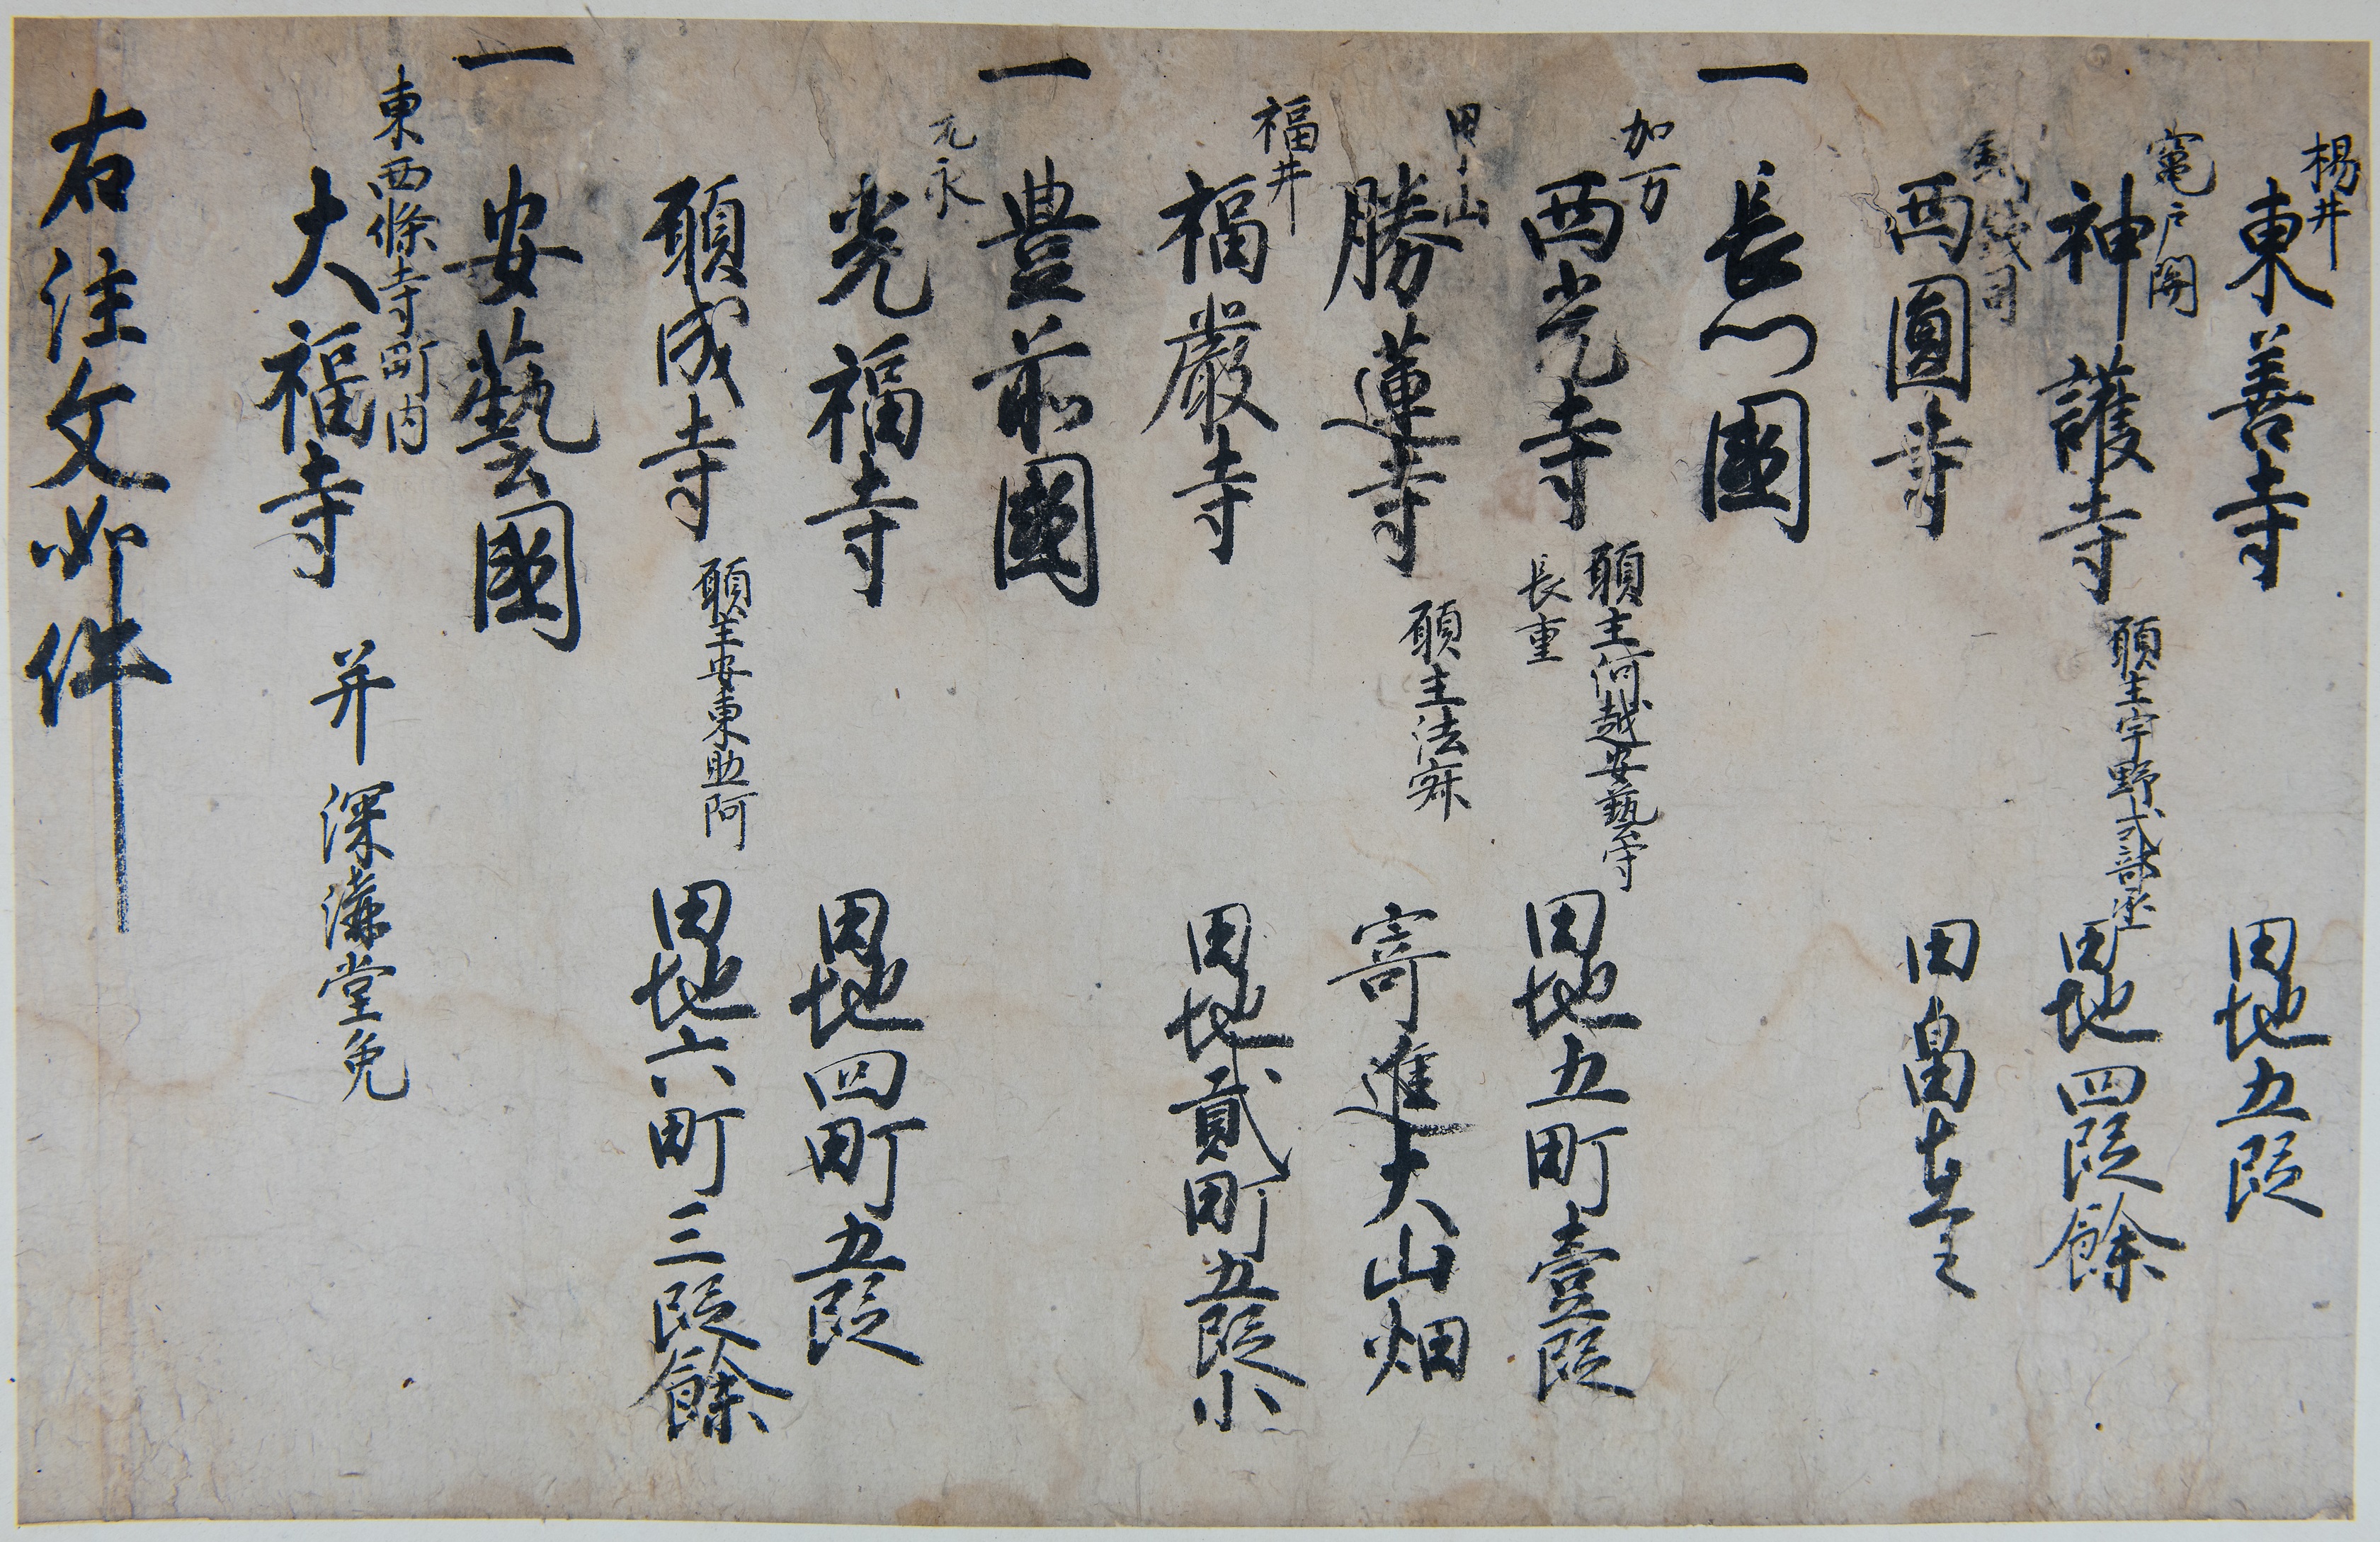 楊井
東善寺 田地五段
竈戸関
神護寺 願主宇野式部丞 田地四段餘
銭司
西圓寺 田畠在之
一 長門國
加万
西光寺 願主河越安藝守
長重 田地五町壹段
田山
勝蓮寺 願主法寂 寄進大山畑
福井
福嚴寺 田地貳町五段小
一 豊前國
元永
光福寺 田地四町五段
願成寺 願主安東助阿 田地六町三段餘
一 安藝國
東西條寺町内
大福寺 并深溝堂免
右注文如件